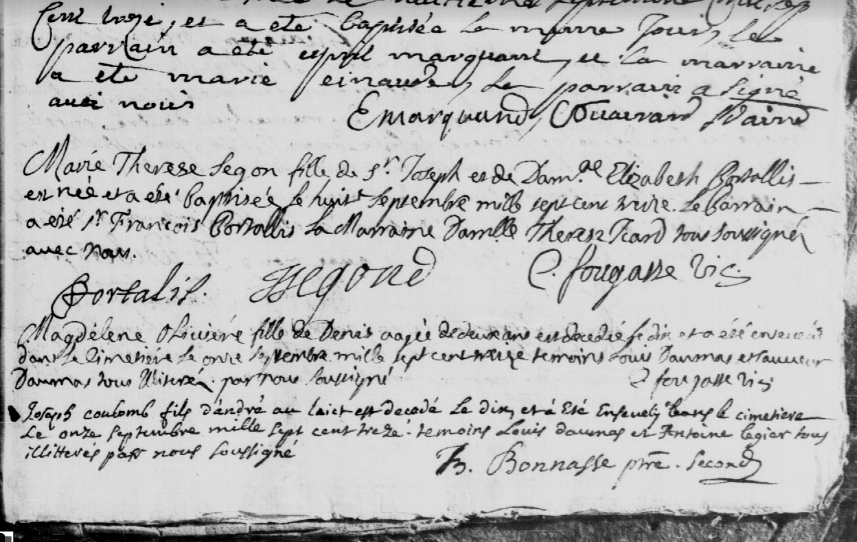 Cent treze, et a été baptisée le meme jour, le
parrain a été esprit marquant, et la marraine
a été marie einaude, le parrain a signé
avec nous
Emarquand,
Marie Therese Segon fille de Sr. Joseph et de Dam.lle Elizabeth Portallis
est née et a été baptisée le huit Septembre mill sept cent treize. Le Parrain
a été Sr. François Portallis la Marraine Damlle Therese Icard tous soussignés
avec Nous.
Portalis. Segond C. fougasse Vic.
Magdelene Oliviere fille de Denis aagée de deux ans est decedée le dix et a été ensevelie
dans le Cimetiere le onze septembre mille sept cent treize temoins Louis Daumas et
Daumas tous Illiterés par nous soussigné. C fougasse Vic.
Joseph coulomb fils d'andré au laict est decedé Le dix, et à Eté Ensevely dans le cimetiere
Le onze septembre mille sept cent treze. temoins Louis daumas et Antoine legier tous
illitteres par nous soussigné
Bonnasse ptre. second